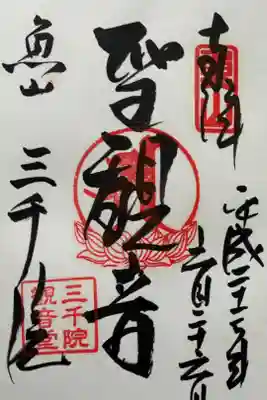 奉拝
平成二十七年
六月二十六日
聖觀音
魚山
三千院
三千院
觀音堂